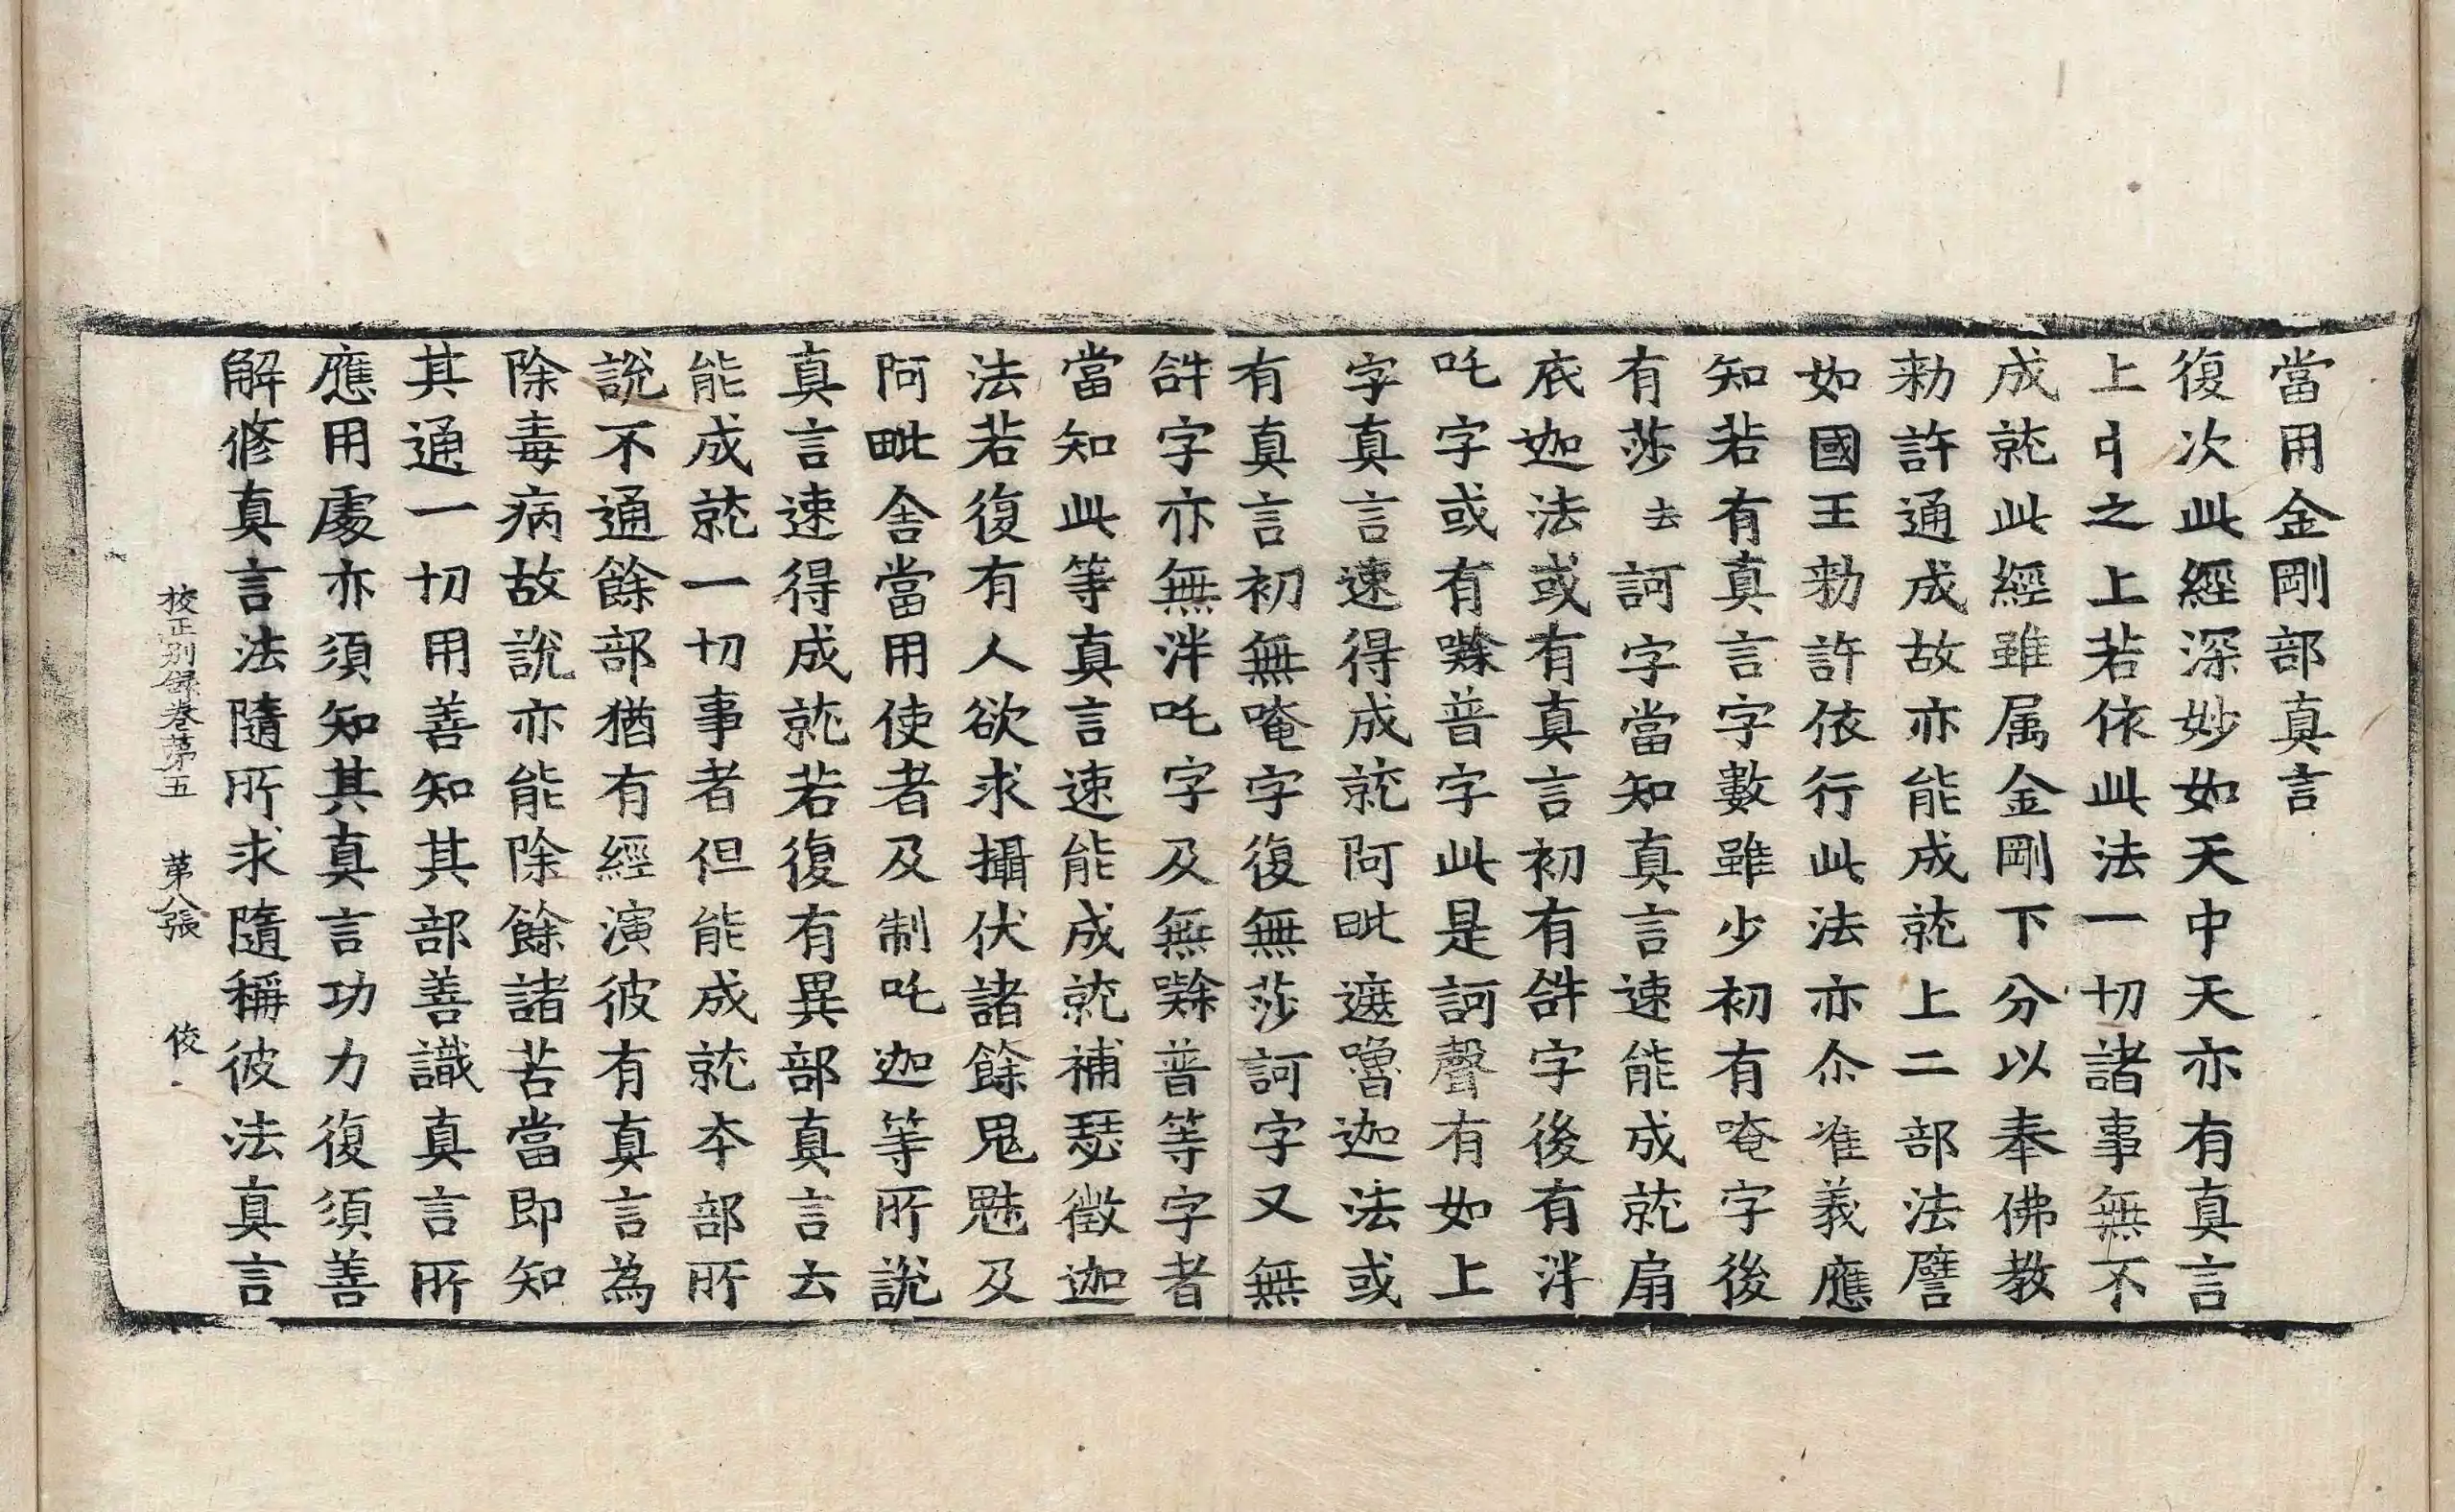 當用金剛部真言
復次此經深妙如天中天亦有真言
上中之上若依此法一切諸事無不
成就此經雖属金剛下分以奉佛教
勑許通成故亦能成就上二部法譬
如國王勑許依行此法亦尒准義應
知若有真言字數雖少初有唵字後
有莎去訶字當知真言速能成就扇
底迦法或有真言初有𤙖字後有泮
吒字或有㗶普字此是訶聲有如上
字真言速得成就阿毗遮嚕迦法或
有真言初無唵字復無莎訶字又無
𤙖字亦無泮吒字及無㗶普等字者
當知此等真言速能成就補瑟徵迦
法若復有人欲求攝伏諸餘鬼魅及
阿毗舍當用使者及制吒迦等所說
真言速得成就若復有異部真言云
能成就一切事者但能成就本部所
說不通餘部猶有經演彼有真言為
除毒病故說亦能除餘諸苦當即知
其通一切用善知其部善識真言所
應用處亦須知其真言功力復須善
解修真言法隨所求隨稱彼法真言
校正別録卷第五　第八張　俊